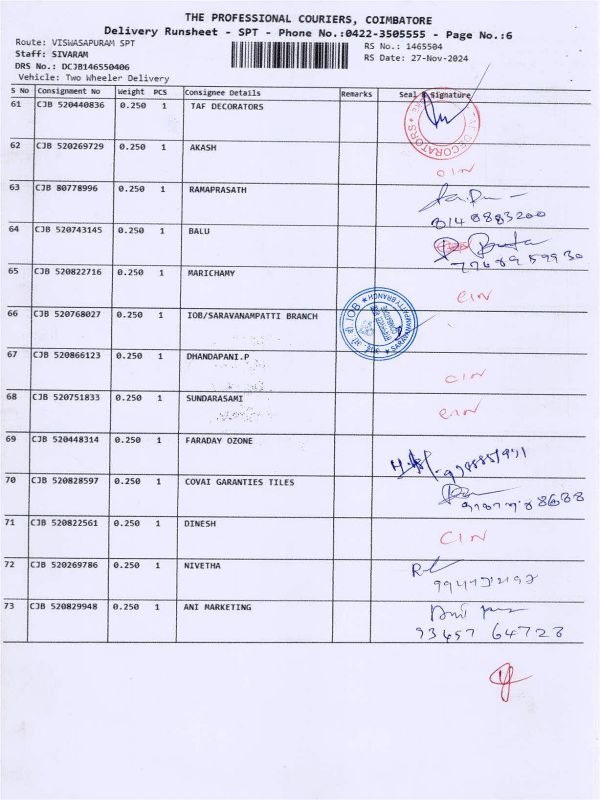 THE PROFESSIONAL COURIERS, COIMBATORE
Delivery Runsheet - SPT - Phone No.:0422-3505555 - Page No.:6
Route: VISWASAPURAM SPT
RS No.: 1465504
Staff: SIVARAM
RS Date: 27-Nov-2024
DRS No.: DCJB146550406
Vehicle: Two Wheeler Delivery
S No Consignment No Weight PCS Consignee Details Remarks Seal & Signature
61 CJB 520440836 0.250 1 TAF DECORATORS
DECORATORS
62 CJB 520269729 0.250 1 AKASH CIN
63 CJB 80778996 0.250 1 RAMAPRASATH
8148883200
64 CJB 520743145 0.250 1 BALU
65 CJB 520822716 0.250 1 MARICHAMY CIN
66 CJB 520768027 0.250 1 IOB/SARAVANAMPATTI BRANCH
IOB SARAVANAMPATTY BRANCH
67 CJB 520866123 0.250 1 DHANDAPANI.P CIN
68 CJB 520751833 0.250 1 SUNDARASAMI CIN
69 CJB 520448314 0.250 1 FARADAY OZONE
70 CJB 520828597 0.250 1 COVAI GARANTIES TILES
71 CJB 520822561 0.250 1 DINESH CIN
72 CJB 520269786 0.250 1 NIVETHA
73 CJB 520829948 0.250 1 ANI MARKETING
93457 64728